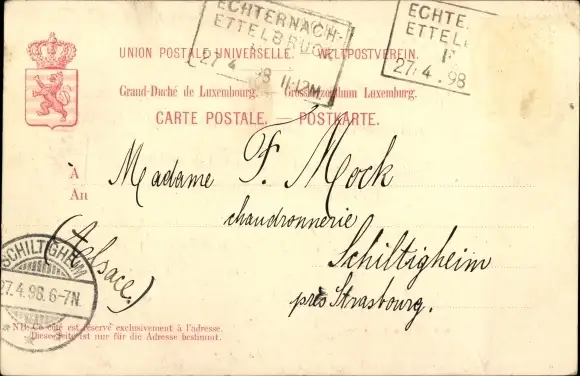 ECHTERNACH-
ETTELBRÜCK
27 4 98 11:12M
ECHTE
ETTEL
27. 4. 98
UNION POSTALE UNIVERSELLE. WELTPOSTVEREIN.
Grand-Duché de Luxembourg. Grossherzogthum Luxemburg.
CARTE POSTALE. — POSTKARTE.
À
An
Madame F. Mock
chaudronnerie
Schiltigheim
près Strasbourg.
(Alsace)
SCHILTIGHEIM
27.4.98. 6-7N.
NB. Ce côté est réservé exclusivement à l'adresse.
Diese Seite ist nur für die Adresse bestimmt.